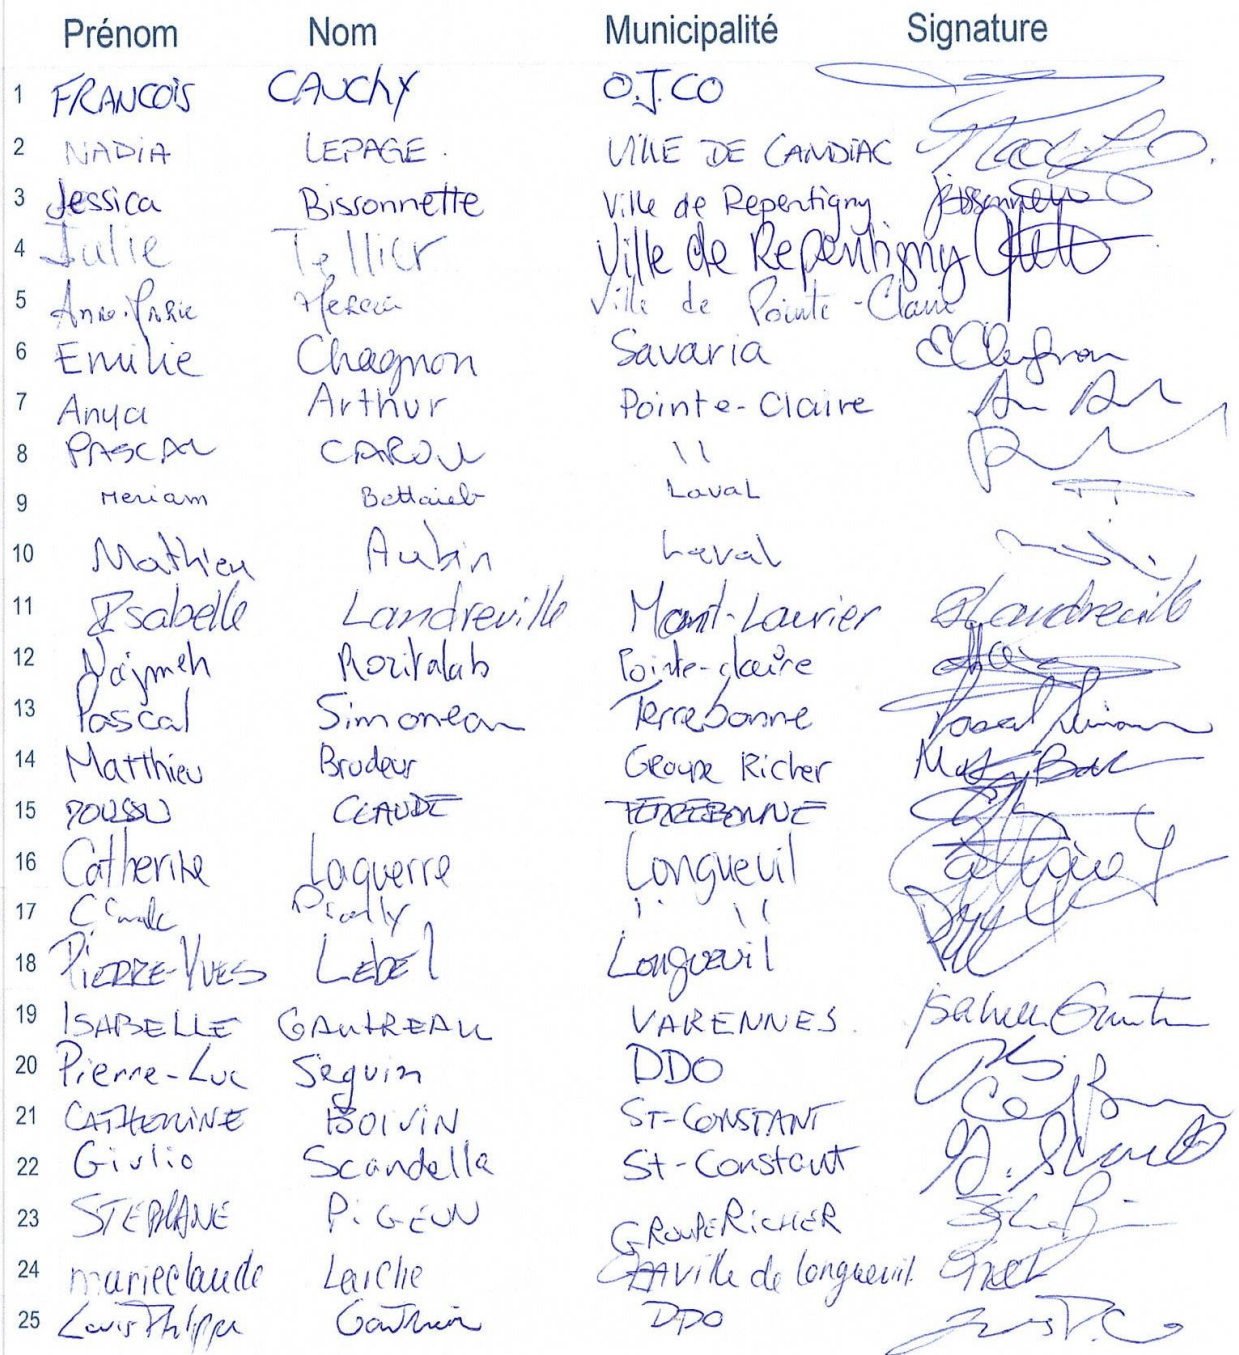 Prénom Nom Municipalité Signature
1 FRANCOIS CAUCHY O.J.CO
2 NADIA LEPAGE. VILLE DE CANDIAC
3 Jessica Bissonnette Ville de Repentigny
4 Julie Tellier Ville de Repentigny
5 Anne-Marie Ville de Pointe-Claire
6 Emilie Chagnon Savaria EChagnon
7 Anya Arthur Pointe-Claire
8 PASCAL CARON 11
9 Meriam Bettaieb Laval
10 Mathieu Aubin Laval
11 Isabelle Landreville Mont-Laurier Landreville
12 Najmeh Rozitalab Pointe-claire
13 Pascal Simoneau Terrebonne Pascal
14 Matthieu Brodeur Groupe Richer
15 CLAUDE TERREBONNE
16 Catherine Laquerre Longueuil
17 11 11
18 PIERRE-YVES LEBEL Longueuil
19 ISABELLE GAUTREAU VARENNES.
20 Pierre-Luc Seguin DDO
21 CATHERINE BOIVIN ST-CONSTANT
22 Giulio Scandella St-Constant
23 STEPHANE PIGEON GROUPE RICHER
24 marieclaude Larche ville de longueuil.
25 Louis Philippe Gauthier DDO